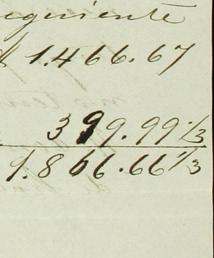 eguiente
$ 1.466.67
399.99 1/3
1.866.66 1/3